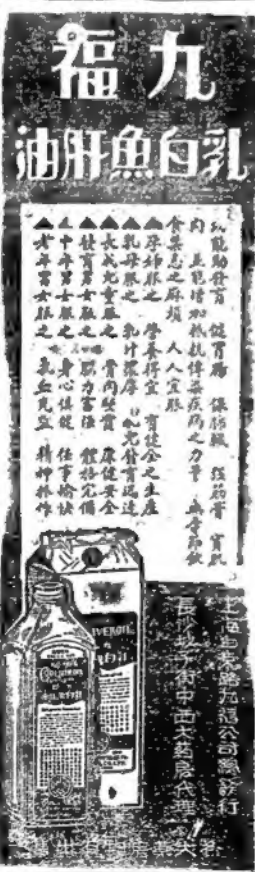 九福
乳白魚肝油
功能助發育 健胃腸 保肺臟 強筋骨 實肌
肉 並能增加抵抗傳染疾病之力量 無季節飲
食禁忌之麻煩 人人宜服
▲孕婦服之 營養得宜 育健全之生產
▲乳母服之 乳汁濃厚 小兒發育迅速
▲長成兒童服之 骨肉堅實 康健安全
▲發育男女服之 腦力富強 體格完備
▲中年男女服之 身心俱健 任事愉快
▲老年男女服之 氣血充盈 精神振作
上海白來路九福公司總發行
長沙坡子街中西大藥房代理